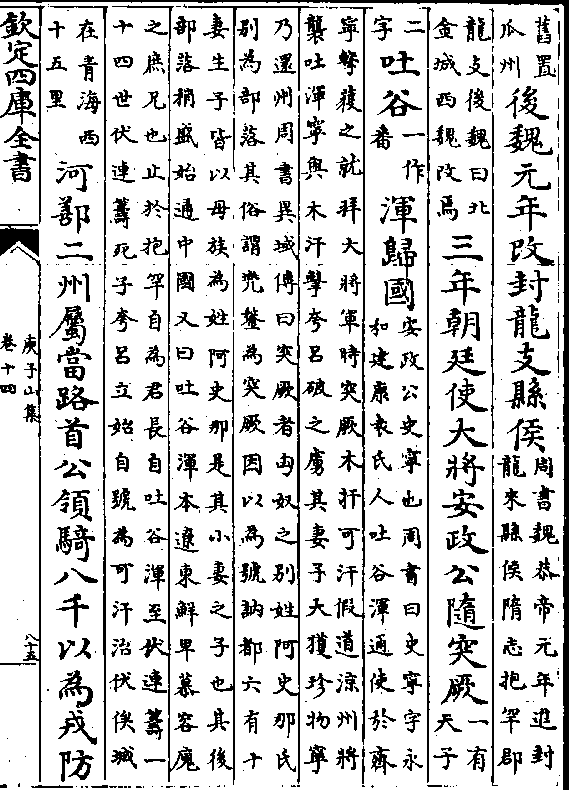 舊置
瓜州
後魏元年改封龍支縣侯
周書魏恭帝元年進封
龍來縣侯隋志抱罕郡
龍支後魏曰北
金城西魏改焉
三年朝廷使大將安政公隨突厥
一有
天子
二
字
吐谷
一作
番
渾歸國
安政公史寧也周書曰史寧字永
和建康表氏人吐谷渾通使於齊
寧擊獲之就拜大將軍時突厥木扞可汗假道涼州將
襲吐渾寧與木汗擊夸呂破之虜其妻子大獲珍物寧
乃還州周書異域傳曰突厥者匈奴之別姓阿史那氏
別為部落其俗謂兜鍪為突厥因以為號訥都六有十
妻生子皆以母族為姓阿史那是其小妻之子也其後
部落稍盛始通中國又曰吐谷渾本遼東鮮卑慕容廆
之庶兄也止於抱罕自為君長自吐谷渾至伏連籌一
十四世伏連籌死子夸呂立始自號為可汗治伏俟城
在青海西
十五里
河鄯二州屬當路首公領騎八千以為戎防
欽定四庫全書
庾子山集
卷十四
八十五